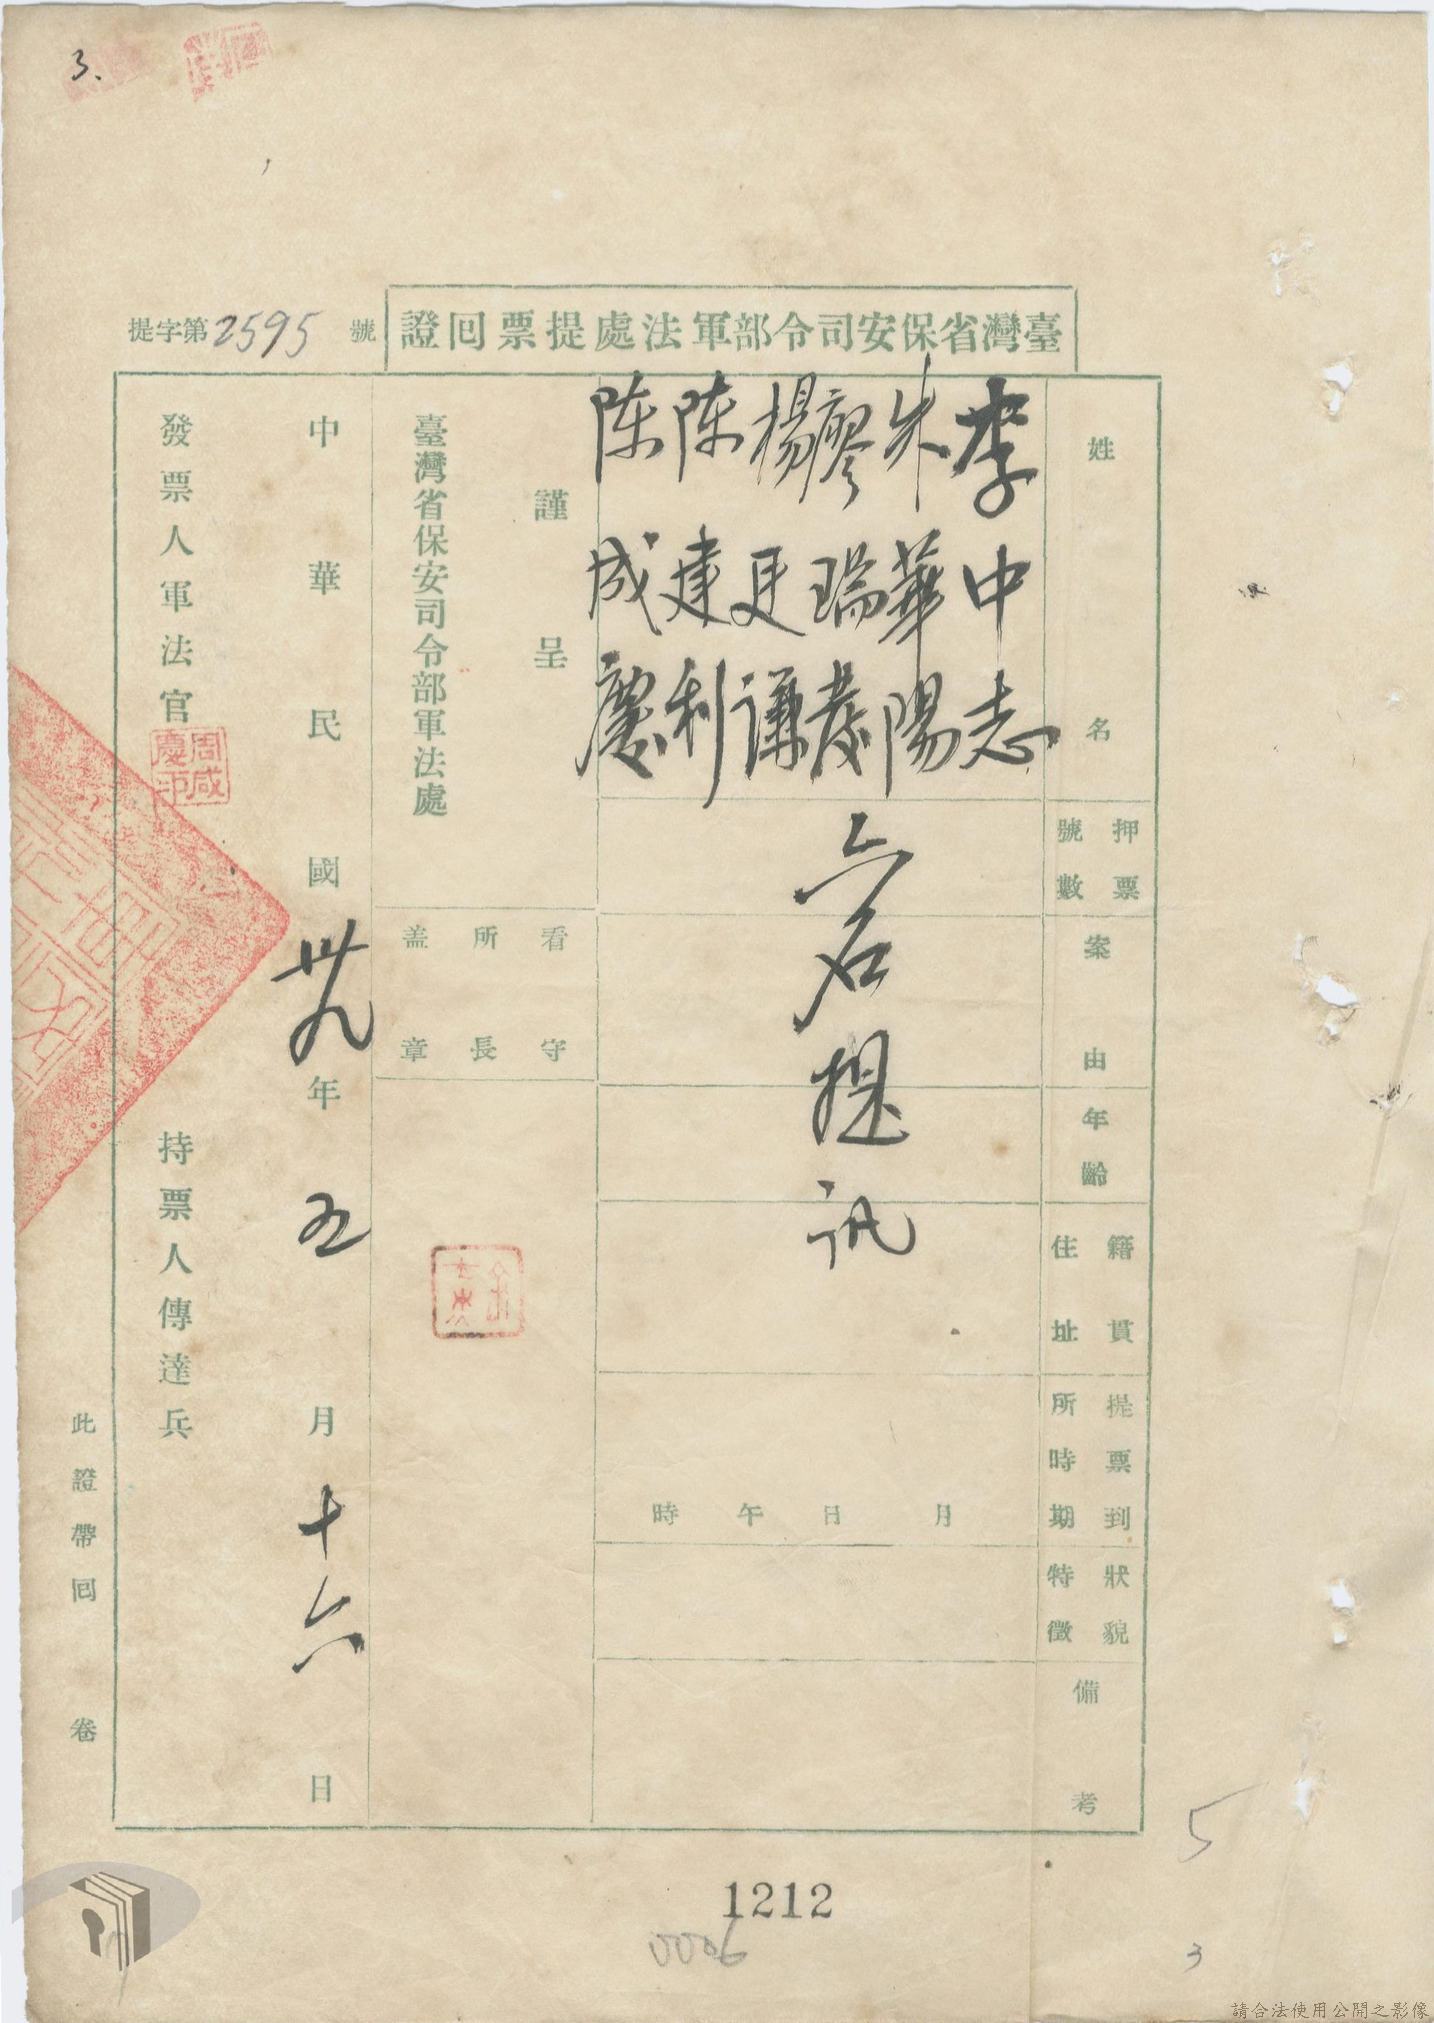 3.
臺灣省保安司令部軍法處提票回證
提字第2595號
姓名
押票號數
案由
年齡
籍貫住址
提票到所時期
狀貌特徵
備考
李中志
朱華陽
廖瑞發
楊廷謙
陈建利
陈成慶
六名提訊
月日午時
謹呈
臺灣省保安司令部軍法處
看守所長盖章
中華民國卅九年五月十六日
發票人軍法官
周咸慶印
持票人傳達兵
此證帶回卷
5
1212
0006
3
請合法使用公開之影像